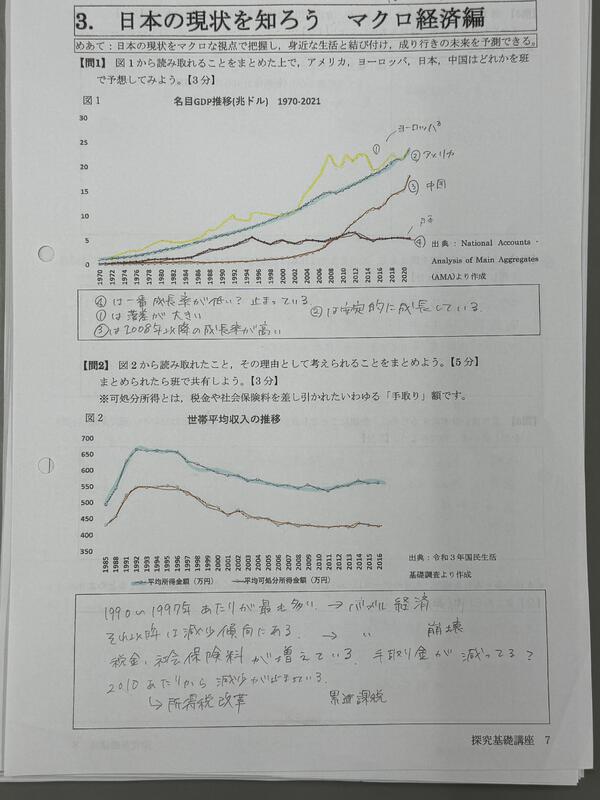 3. 日本の現状を知ろう マクロ経済編
めあて：日本の現状をマクロな視点で把握し，身近な生活と結び付け，成り行きの未来を予測できる。
【問1】 図1から読み取れることをまとめた上で，アメリカ，ヨーロッパ，日本，中国はどれかを班
で予想してみよう。【3分】
図1
名目GDP推移(兆ドル) 1970-2021
30
25
20
15
10
5
0
1970 1972 1974 1976 1978 1980 1982 1984 1986 1988 1990 1992 1994 1996 1998 2000 2002 2004 2006 2008 2010 2012 2014 2016 2018 2020
① ヨーロッパ
② アメリカ
③ 中国
④ 日本
出典：National Accounts -
Analysis of Main Aggregates
(AMA)より作成
④は一番成長率が低い？止まっている．
①は落差が大きい ②は安定的に成長している．
③は2008年以降の成長率が高い
【問2】 図2から読み取れたこと，その理由として考えられることをまとめよう。【5分】
まとめられたら班で共有しよう。【3分】
※可処分所得とは，税金や社会保険料を差し引かれたいわゆる「手取り」額です。
図2
世帯平均収入の推移
700
650
600
550
500
450
400
350
1985 1988 1991 1992 1993 1994 1995 1996 1997 1998 1999 2000 2001 2002 2003 2004 2005 2006 2007 2008 2009 2010 2011 2012 2013 2014 2015 2016
平均所得金額（万円） 平均可処分所得金額（万円）
出典：令和3年国民生活
基礎調査より作成
1990〜1997年あたりが最も多い → バブル経済
それ以降は減少傾向にある → 〃 崩壊
税金、社会保険料が増えている．手取り金が減ってる？
2010あたりから減少が止まっている．
↳所得税改革 累進課税
探究基礎講座 7